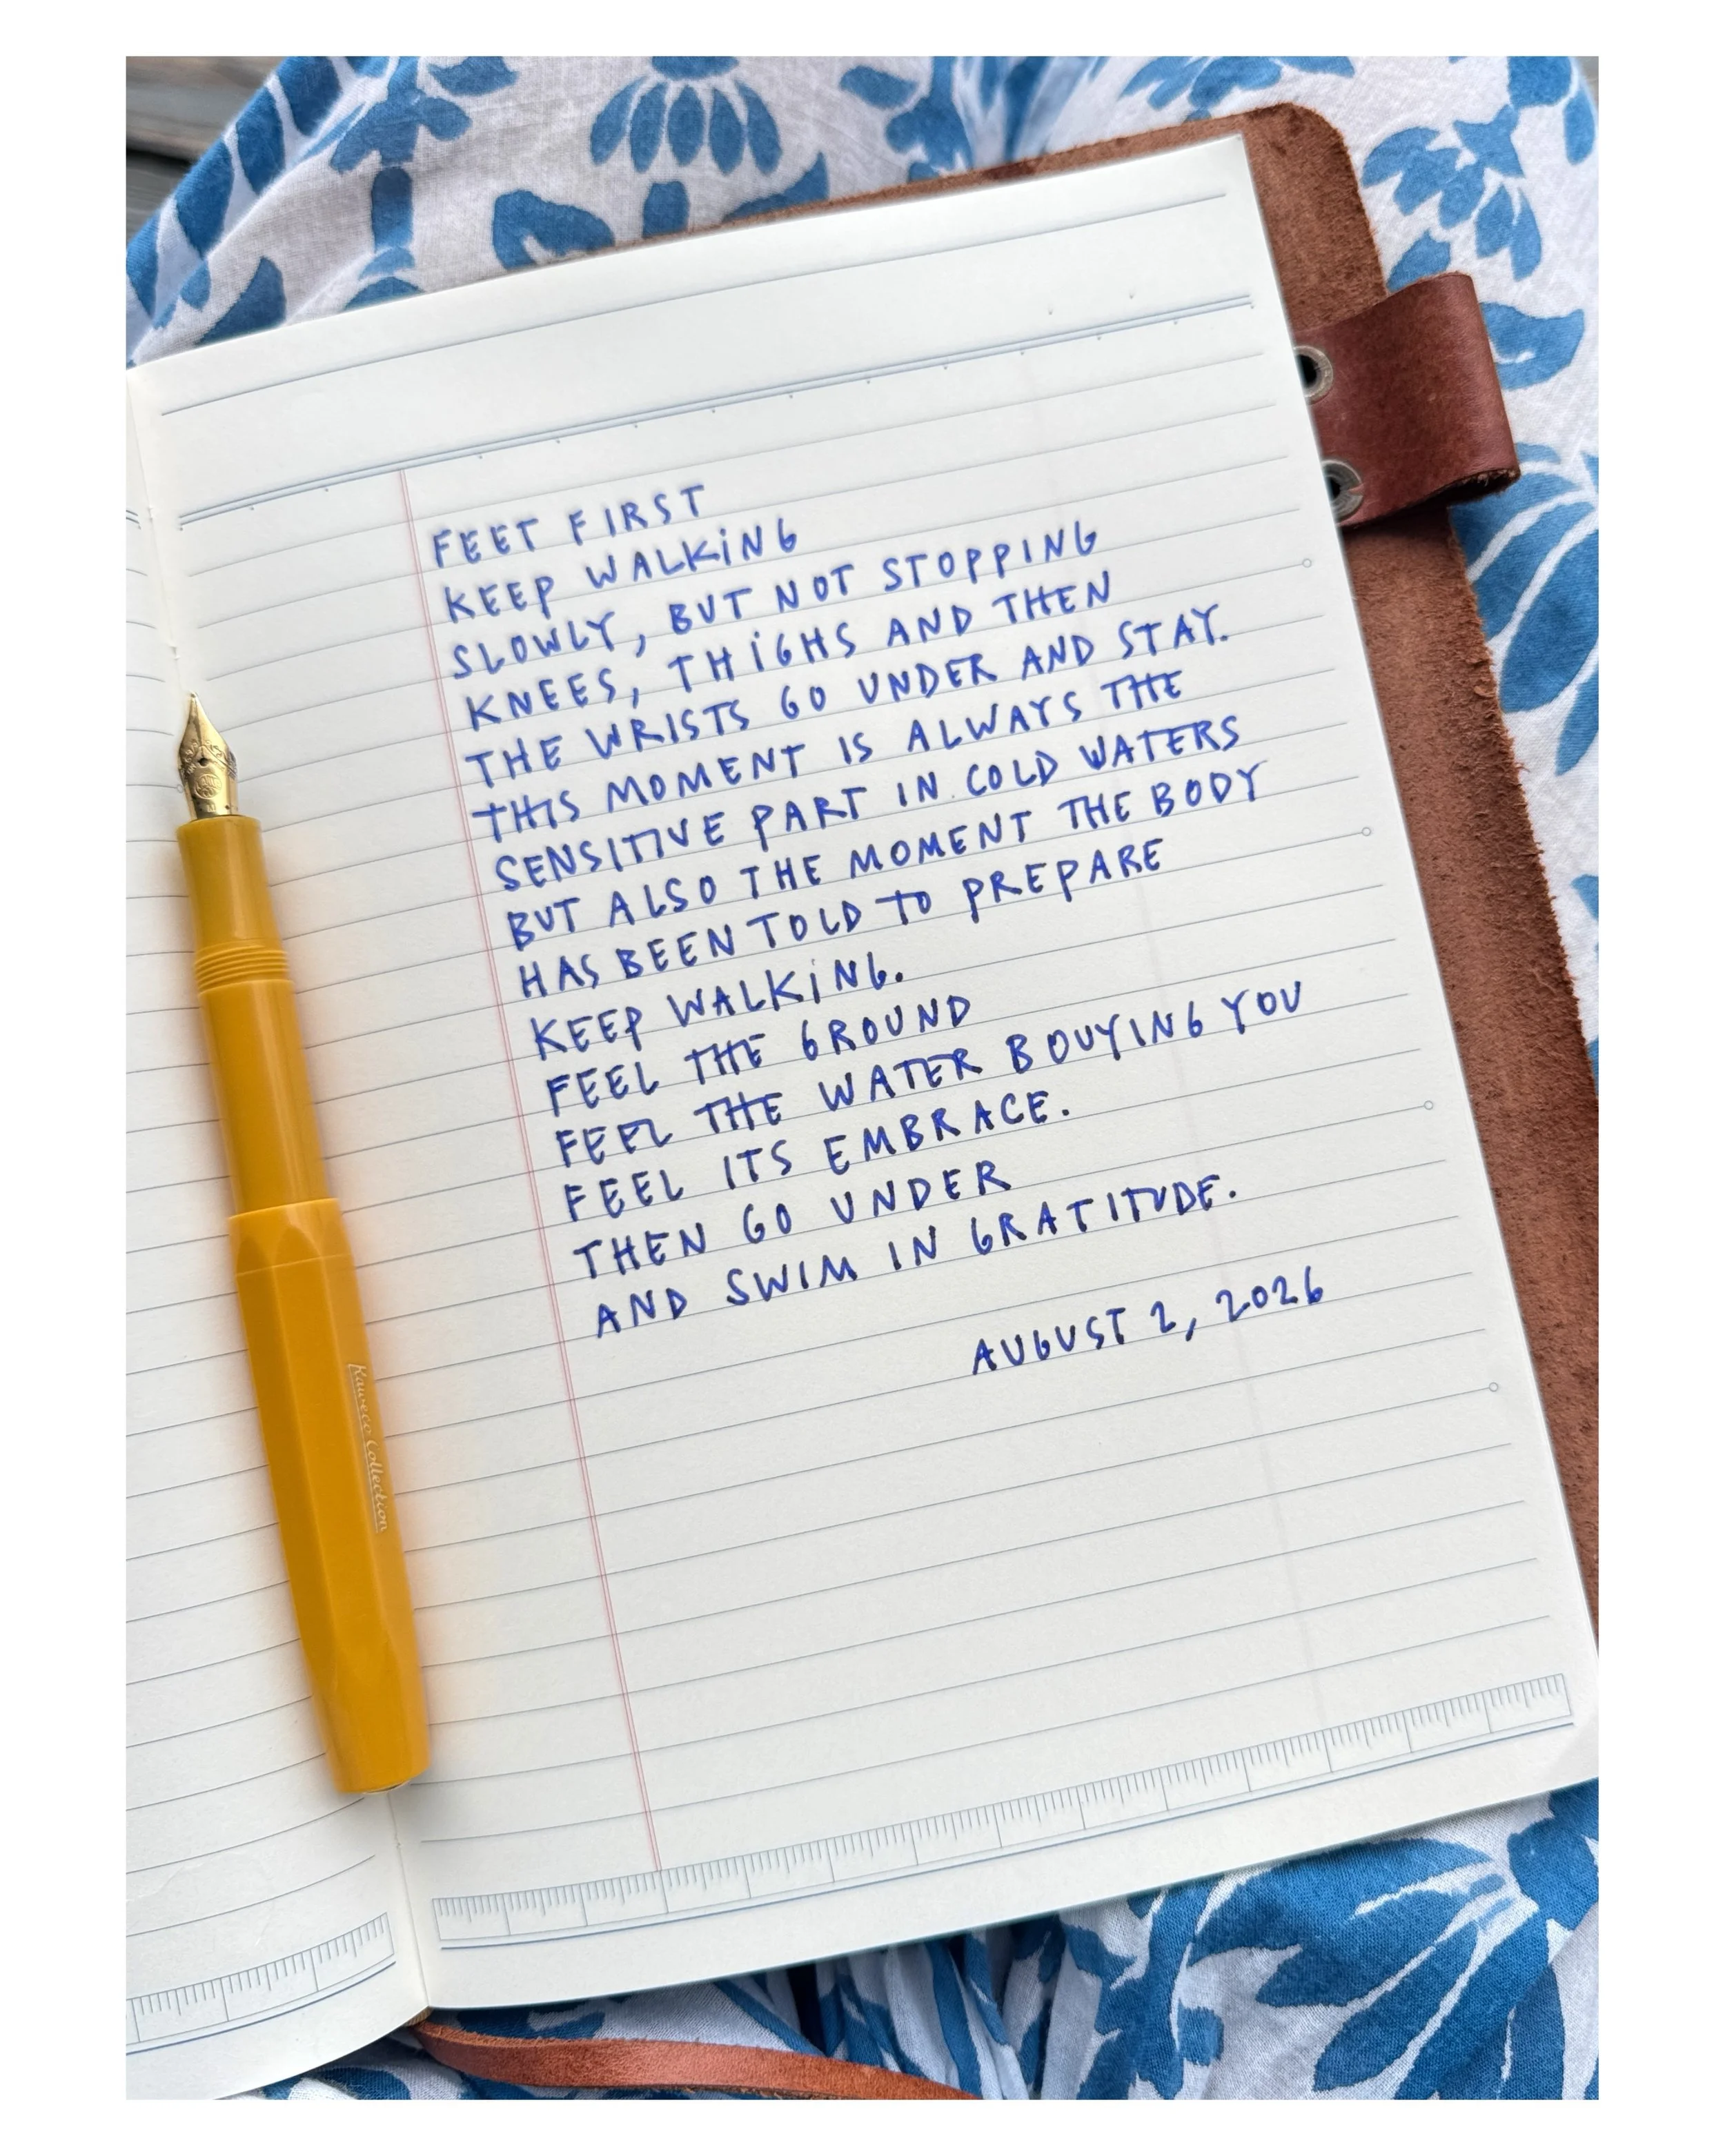 FEET FIRST
KEEP WALKING
SLOWLY, BUT NOT STOPPING
KNEES, THIGHS AND THEN
THE WRISTS GO UNDER AND STAY.
THIS MOMENT IS ALWAYS THE
SENSITIVE PART IN COLD WATERS
BUT ALSO THE MOMENT THE BODY
HAS BEEN TOLD TO PREPARE
KEEP WALKING.
FEEL THE GROUND
FEEL THE WATER BOUYING YOU
FEEL ITS EMBRACE.
THEN GO UNDER
AND SWIM IN GRATITUDE.
AUGUST 2, 2026
Kaweco Collection